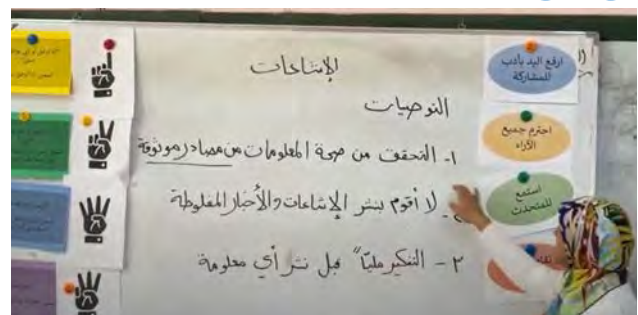 الإشاعات
التوصيات
١- التحقق من صحة المعلومات من مصادر موثوقة
لا أقوم بنشر الإشاعات والأخبار المغلوطة
٣- التفكير مليّاً قبل نشر أي معلومة
ارفع اليد بأدب
للمشاركة
احترم جميع
الآراء
استمع
للمتحدث